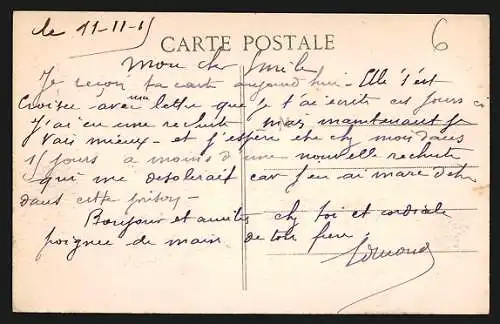 le 11-11-15
6
CARTE POSTALE
Mon cher Emile
Je reçois ta carte aujourd'hui - Elle s'est
croisée avec ma lettre que je t'ai écrite ces jours ci
J'ai eu une rechute mais maintenant je
vais mieux - et j'espère être chez moi dans
15 jours a moins d'une nouvelle rechute
qui me désolerait car j'en ai marre d'être
dans cette prison -
Bonjour et amitiés chez toi et cordiale
poignée de main de ton frère